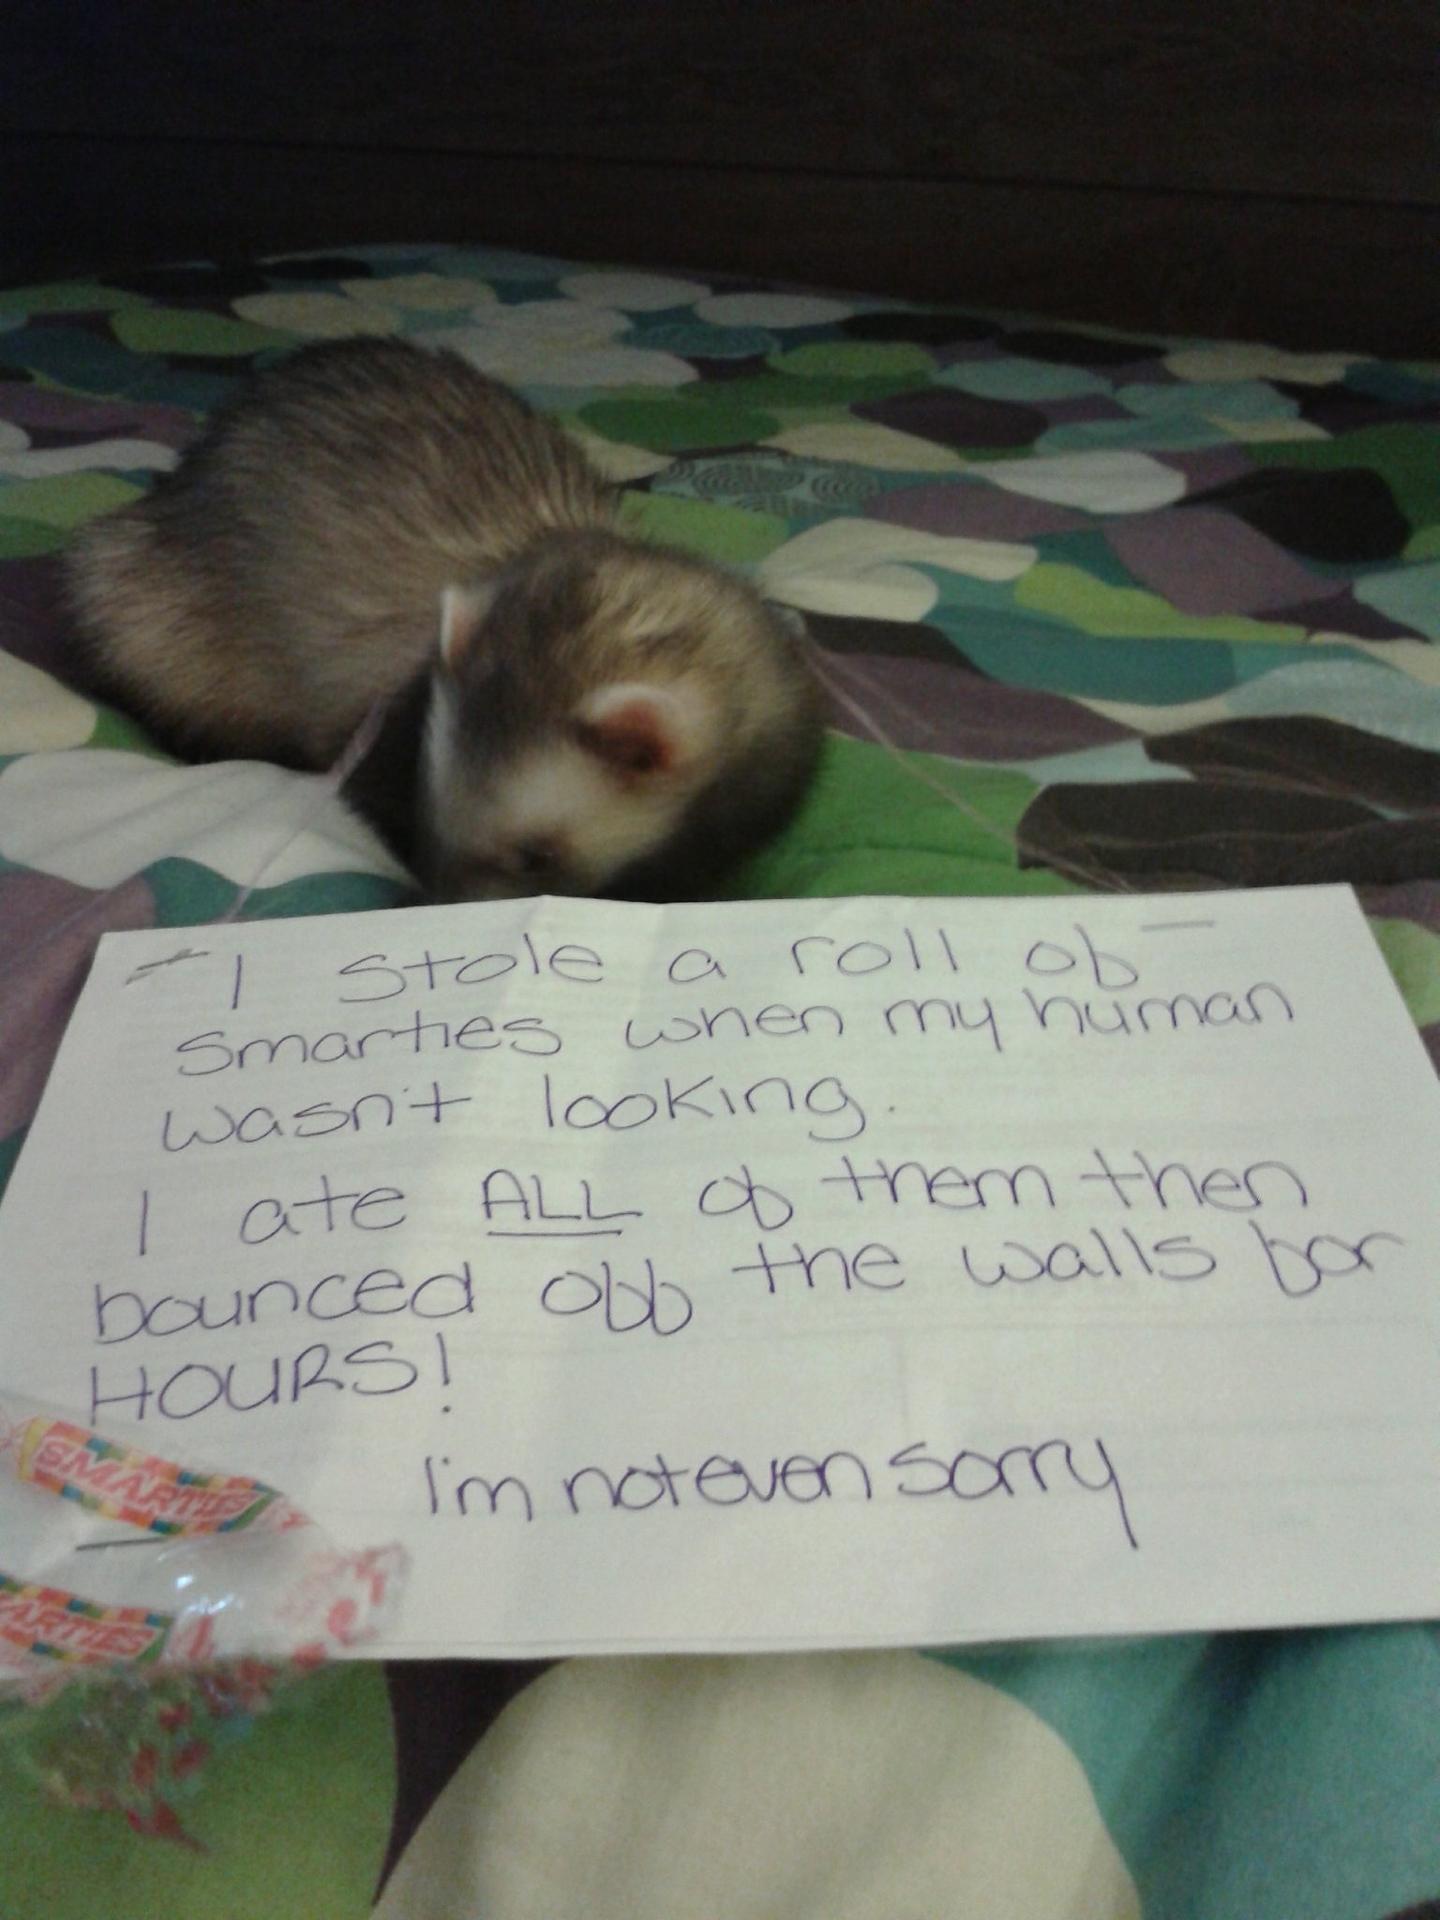 I stole a roll of
smarties when my human
wasn't looking.
I ate ALL of them then
bounced off the walls for
HOURS!
I'm not even sorry
SMARTIES
ARTIES